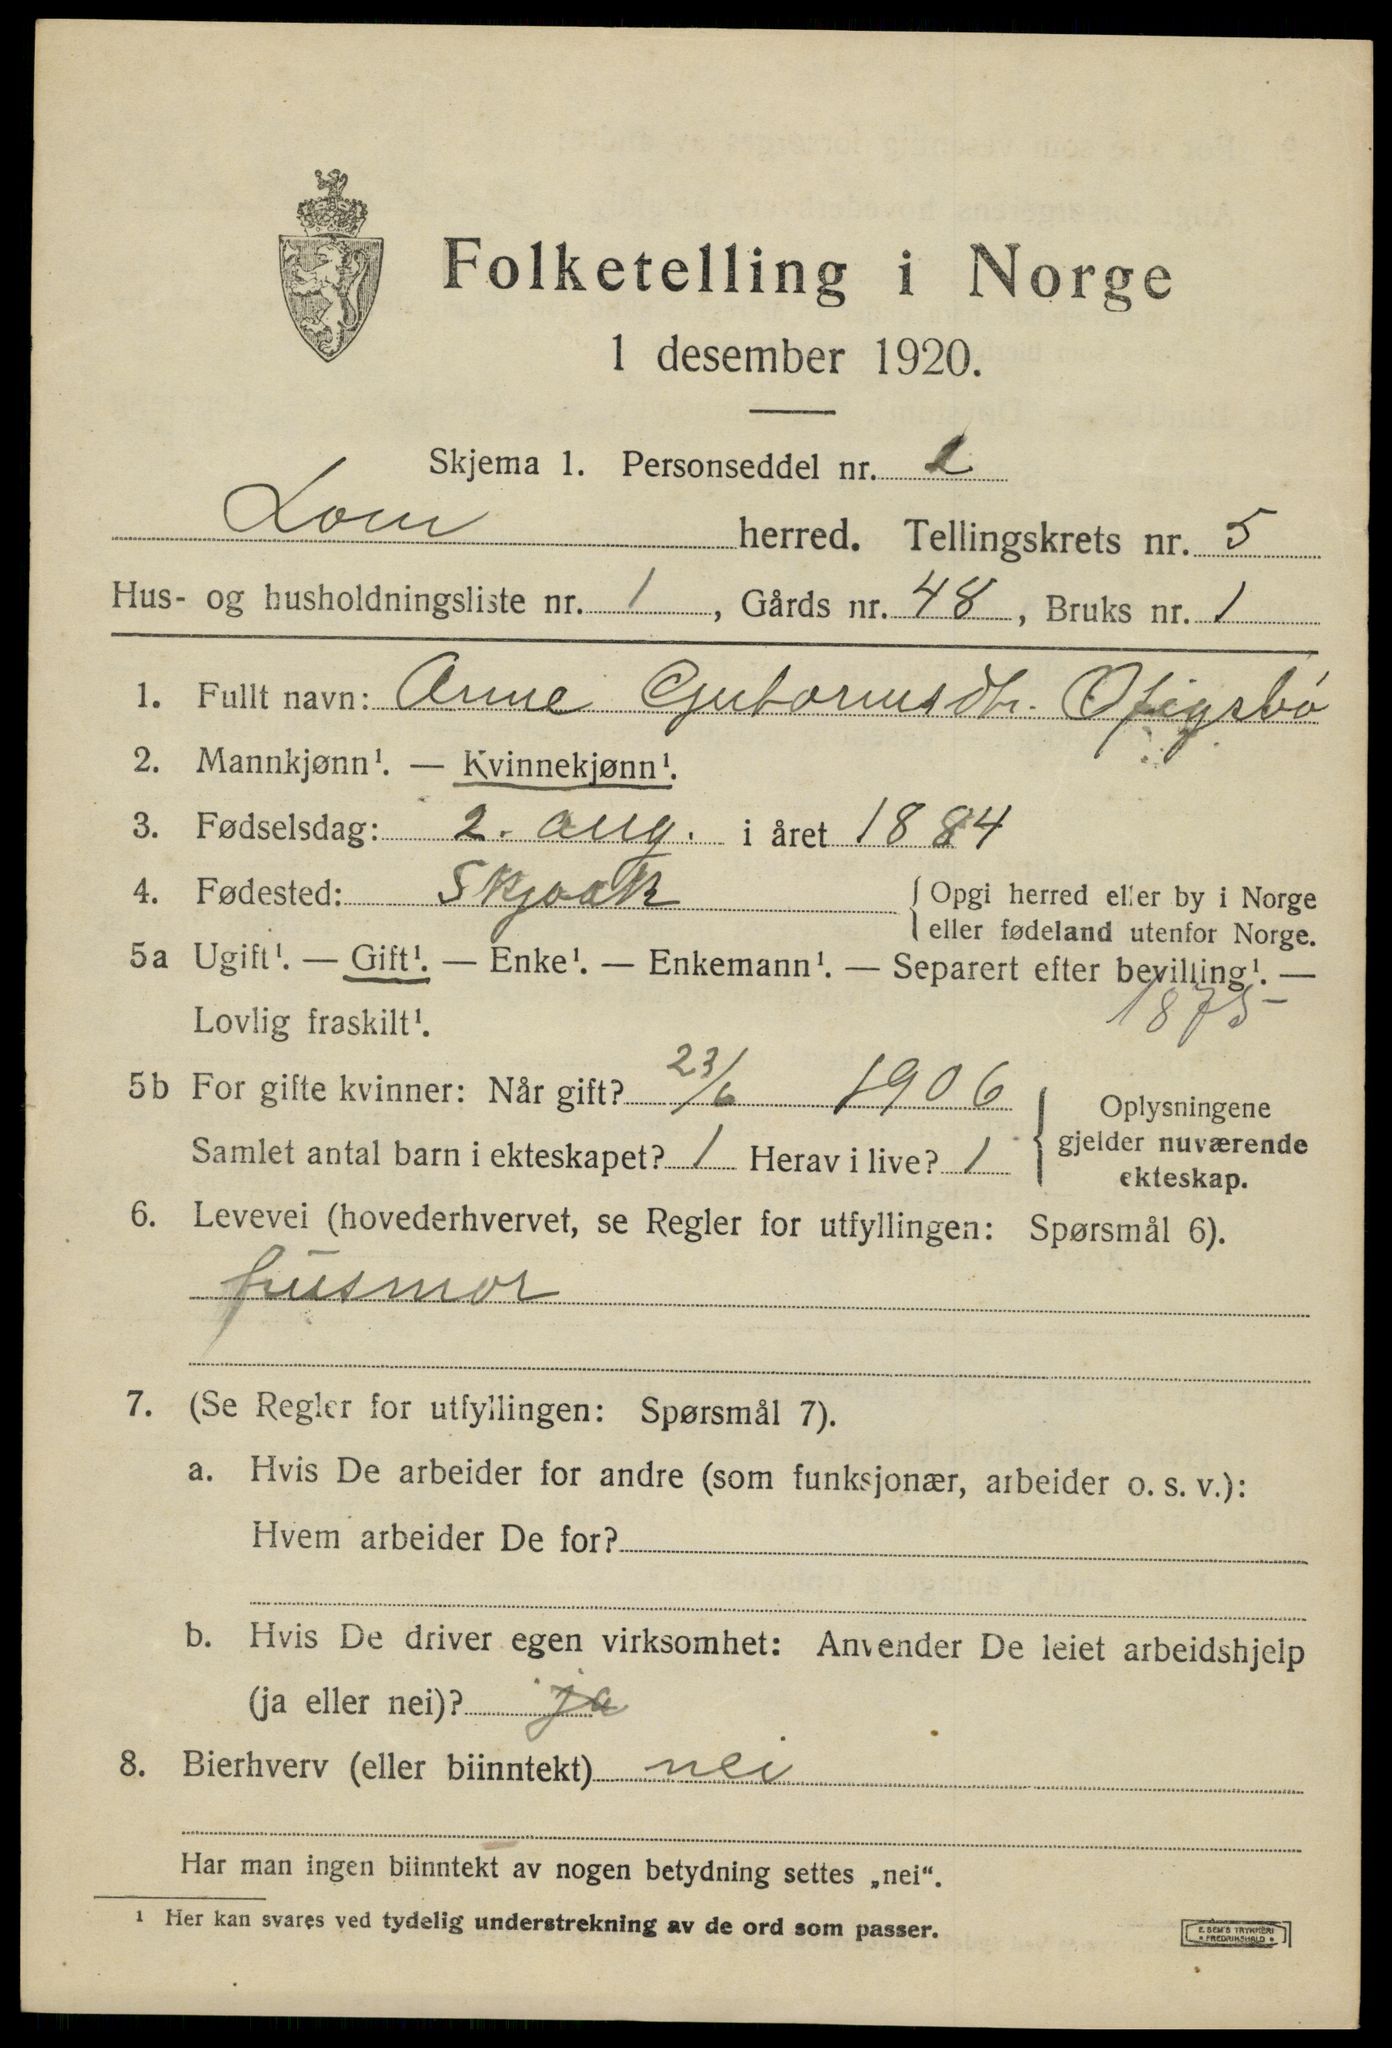 Folketelling i Norge
1 desember 1920.
Skjema 1. Personseddel nr. 2
Lom herred. Tellingskrets nr. 5
Hus- og husholdningsliste nr. 1, Gårds nr. 48, Bruks nr. 1
1. Fullt navn: Anne Guttormsdtr. Ofigsbö
2. Mannkjønn¹. — Kvinnekjønn¹.
3. Fødselsdag: 2. aug. i året 1884
4. Fødested: Skjaak { Opgi herred eller by i Norge
eller fødeland utenfor Norge.
5a Ugift¹. — Gift¹. — Enke¹. — Enkemann¹. — Separert efter bevilling¹. —
Lovlig fraskilt¹. 1875
5b For gifte kvinner: Når gift? 23/6 1906
Samlet antal barn i ekteskapet? 1 Herav i live? 1
Oplysningene
gjelder nuværende
ekteskap.
6. Levevei (hovederhvervet, se Regler for utfyllingen: Spørsmål 6).
husmor
7. (Se Regler for utfyllingen: Spørsmål 7).
a. Hvis De arbeider for andre (som funksjonær, arbeider o. s. v.):
Hvem arbeider De for?
b. Hvis De driver egen virksomhet: Anvender De leiet arbeidshjelp
(ja eller nei)? ja
8. Bierhverv (eller biinntekt) nei
Har man ingen biinntekt av nogen betydning settes „nei“.
¹ Her kan svares ved tydelig understrekning av de ord som passer.
E. SEM'S TRYKKERI
FREDRIKSHALD